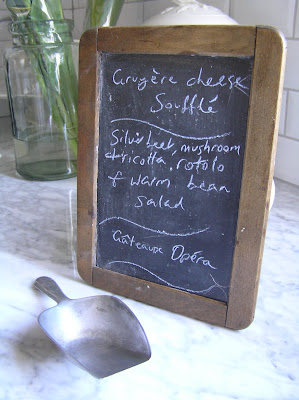 Gruyère cheese
Soufflé
Silverbeet, mushroom
& ricotta, rotolo
& warm bean
salad
Gâteaux Opéra